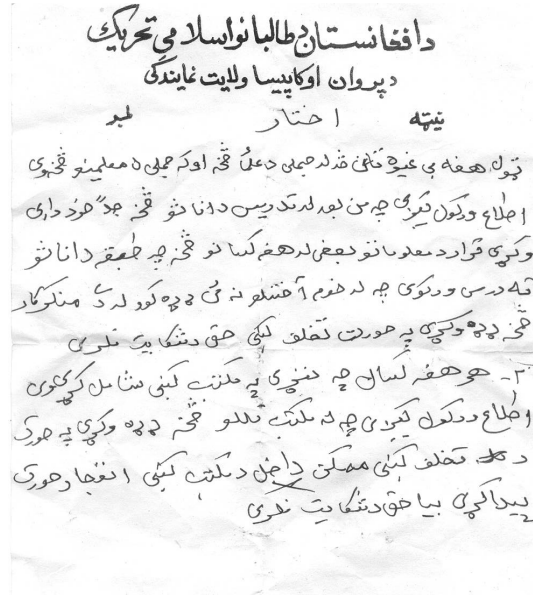 د افغانستان د طالبانو اسلامي تحریک
د پروان او کاپیسا ولایت نمایندګی
نیټه اختار لمبر
ټول هغه بی غیره د علمأ څخه اوکه جملی د معلمینو څخه وی
اطلاع ورکول کیږی چه من بعد له تدریس د اناثو څخه جداً خود داری
وکړی قرار د معلوماتو بعضی له هغه کسانو څخه چه طبقه د اناثو
ته درس ورکوی چه له خوم اختلو نه ئی ډډه کوو له دی منکر کار
څخه ډډه وکړی په صورت تخلف کښی حق د شکایت نلری
۲- هر هغه کسان چه په مکتب کښی شامل کړی وی
اطلاع ورکول کیږی چه له مکتب تللو څخه ډډه وکړی په صورت
د تخلف کښی ممکن داخل د مکتب کښی انفجار صورت
پیدا کړی بیا حق د شکایت نلری